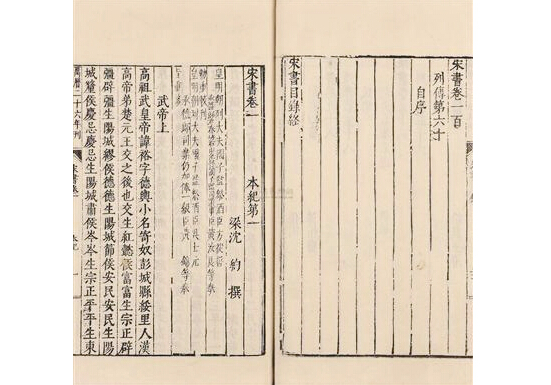 宋書卷一百
列傳第六十
自序
宋書目錄終
宋書卷一
本紀第一
梁沈約撰
武帝上
高祖武皇帝諱裕字德輿小名寄奴彭城縣綏里人漢
高帝弟楚元王交之後也交生紅懿侯富富生宗正辟
彊辟彊生陽城繆侯德德生陽城節侯安民安民生陽
城釐侯慶忌慶忌生陽城肅侯岑岑生宗正平平生東
二十六年刊
宋書卷一